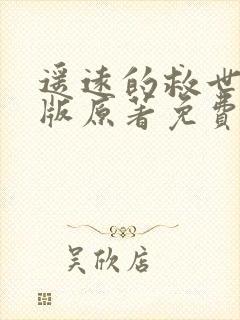 遥远的救世
版原著免费
吴欣店